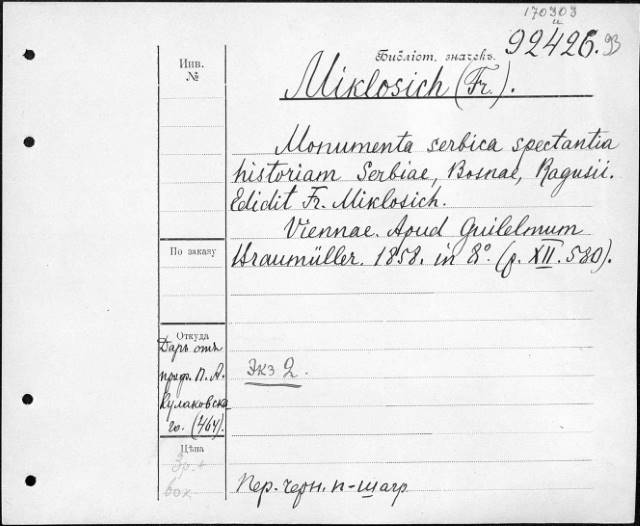 170303
Библіот. значекъ.
92426.93
Инв.
№
Miklosich (Fr.).
Monumenta serbica spectantia
historiam Serbiae, Bosnae, Ragusii.
Edidit Fr. Miklosich.
Viennae. Apud Guilelmum
Braumüller. 1858. in 8º. (p. XII. 580).
По заказу
Откуда
Даръ отъ
проф. П. А.
Кулаковска-
го. (464).
Экз 2.
Цѣна
Пер. черн. п-шагр